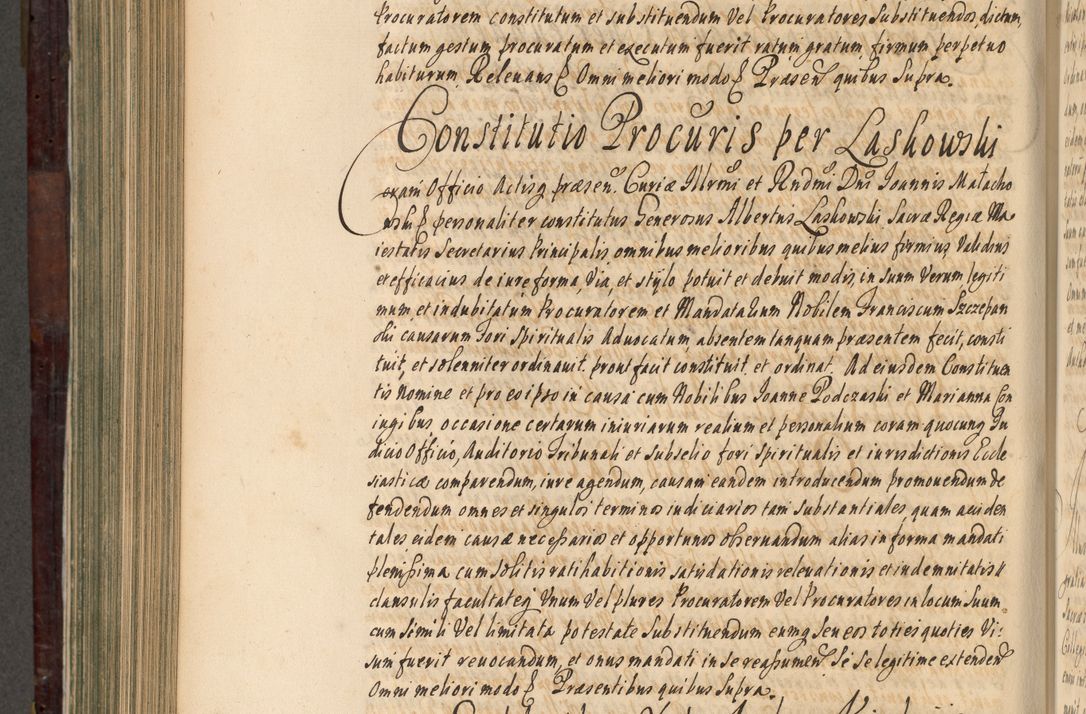 Procuratorem constitutum et substituendum Vel Procuratores Substituendos, dictum,
factum gestum procuratum et executum fuerit ratum, gratum, firmum perpetuo
habiturum. Relevans &. Omni meliori modo &. Præsen. quibus Supra.
Constitutio Procuris per Laskowski
Coram Officio Actisq præsen. Curiæ Illrmi et Rndmi Dni Joannis Małacho
wski &. personaliter constitutus Generosus Albertus Laskowski Sacræ Regiæ Ma
iestatis Secretarius Principalis omnibus melioribus quibus melius firmius, validius
et efficacius de iure forma, Via, et stylo potuit et debuit modis, in Suum Verum legiti
mum et indubitatum Procuratorem et Mandatarium Nobilem Franciscum Szczepan
ski causarum Fori Spiritualis Advocatum, absentem tanquam præsentem fecit, consti
tuit, et solenniter ordinavit. prout facit constituit, et ordinat. Ad eiusdem Constituen
tis Nomine et pro eo ipso in causa cum Nobilibus Joanne Podczaski et Marianna Con
iugibus occasione certarum iniuriarum realium et personalium coram quocunq Ju
dicio Officio, Auditorio Tribunali et Subselio fori Spiritualis et iurisdictionis Eccle
siasticæ comparendum, iure agendum, causam eandem introducendum promovendum de
fendendum omnes et singulos terminos iudiciarios tam Substantiales quam acciden
tales eidem causæ necessarios et opportunos observandum alias in forma mandati
plenissima cum Solitis ratihabitionis satisdationis relevationis et indemnitatis
clausulis facultateq Unum Vel plures Procuratorem Vel Procuratores in locum Suum
cum Simili Vel limitata potestate Substituendum eumq Seu eos toties quoties Vi:
sum fuerit revocandum, et onus mandati in se reassumen Se Se legitime extenden
Omni meliori modo &. Præsentibus quibus Supra.